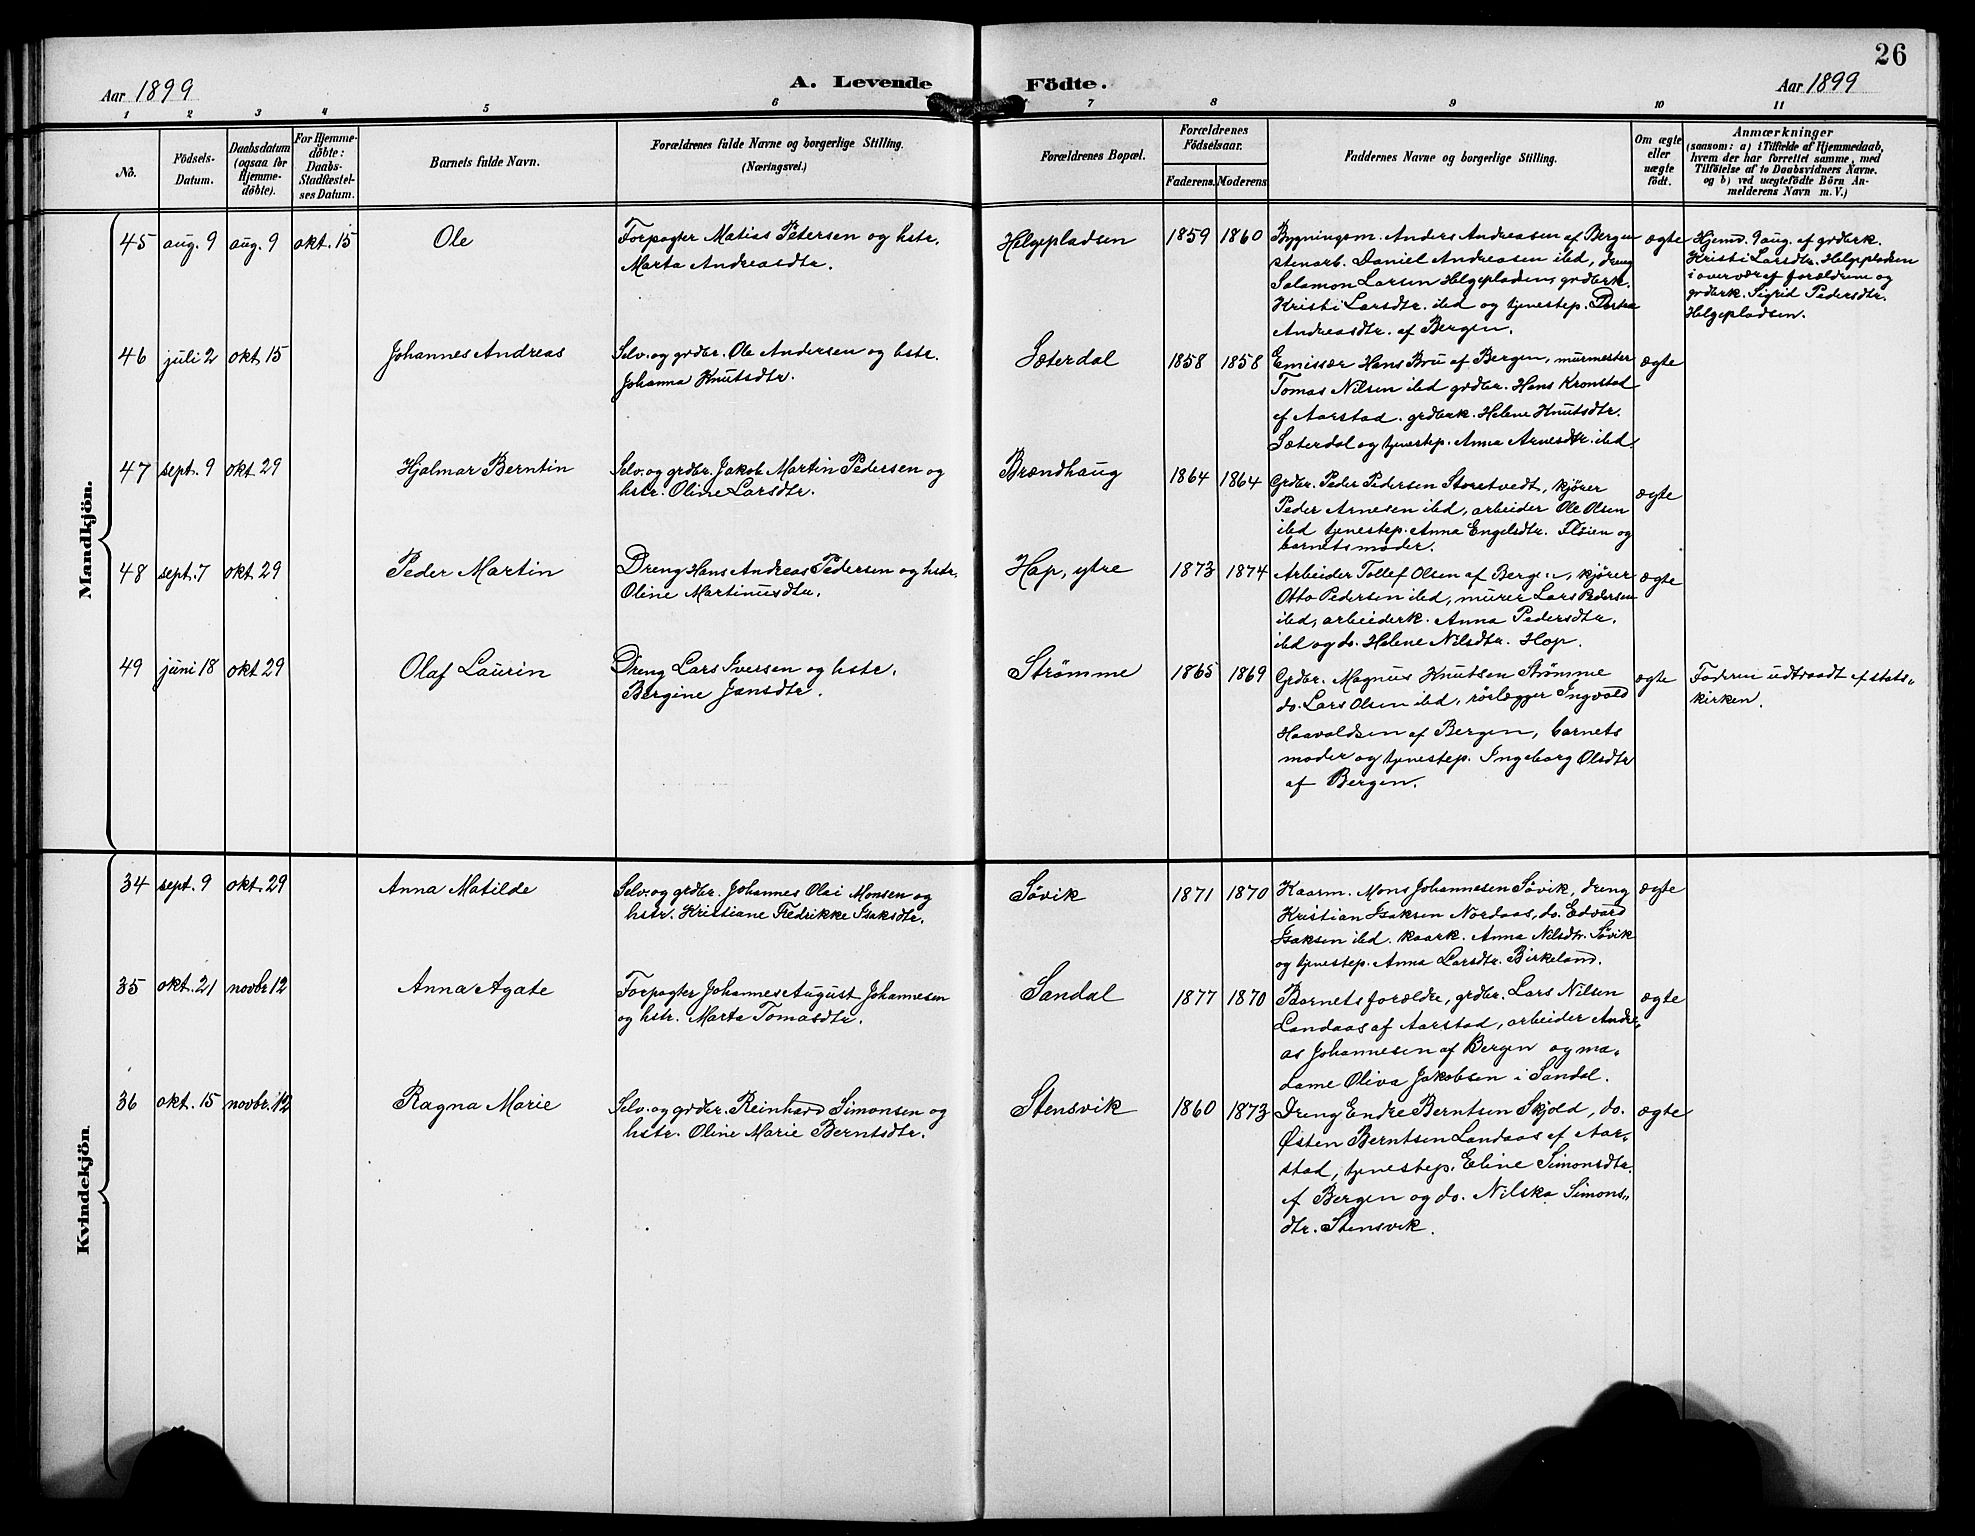 26
Aar 1899
A. Levende Födte.
Aar 1899
1 2 3 4 5 6 7 8 9 10 11
No.
Födsels-
Datum.
Daabsdatum
(ogsaa for
Hjemme-
döbte).
For Hjemme-
döbte:
Daabs-
Stadfæstel-
ses Datum.
Barnets fulde Navn.
Forældrenes fulde Navne og borgerlige Stilling.
(Næringsvei.)
Forældrenes Bopæl.
Forældrenes
Födselsaar.
Faderens. Moderens.
Faddernes Navne og borgerlige Stilling.
Om ægte
eller
uægte
födt.
Anmærkninger
(saasom: a) i Tilfælde af Hjemmedaab,
hvem der har forrettet samme, med
Tilföielse af to Daabsvidners Navne.
og b) ved uægtefödte Börn An-
melderens Navn m. V.)
Mandkjön.
45 aug. 9 aug. 9 okt. 15 Ole
Forpagter Matias Petersen og hstr.
Marta Andreasdtr.
Helgepladsen 1859 1860
Bygningsm. Anders Andreasen af Bergen
stenarb. Daniel Andreasen ibd, dreng
Salomon Larsen Helgepladsen, grdbrk.
Kristi Larsdtr. ibd og tjenestep.
Andreasdtr. af Bergen.
ægte
Hjemd. 9 aug. af grdbrk.
Kristi Larsdtr. Helgepladsen
i overvær af forældrene og
grdbrk. Sigrid Pedersdtr.
Helgepladsen.
46 juli 2 okt. 15 Johannes Andreas
Selv. og grdbr. Ole Andersen og hstr.
Johanna Knutsdtr.
Sæterdal 1858 1858
Emissær Hans Bru af Bergen, murmester
Tomas Nilsen ibd grdbr. Hans Kronstad
af Aarstad. grdbrk. Helene Knutsdtr.
Sæterdal og tjenestep. Anna Arnesdtr. ibd.
ægte
47 sept. 9 okt. 29 Hjalmar Berntin
Selv. og grdbr. Jakob Martin Pedersen og
hstr. Oline Larsdtr.
Brændhaug 1864 1864
Grdbr. Peder Pedersen Storetvedt, kjører
Peder Arnesen ibd, arbeider Ole Olsen
ibd tjenestep. Anna Engelsdtr. Fløien og
barnets moder.
ægte
48 sept. 7 okt. 29 Peder Martin
Dreng Hans Andreas Pedersen og hstr.
Oline Martinusdtr.
Hop, ytre 1873 1874
Arbeider Tollef Olsen af Bergen, kjører
Otto Pedersen ibd, murer Lars Pedersen
ibd, arbeiderk. Anna Pedersdtr.
ibd og do. Helene Nilsdtr. Hop.
ægte
49 juni 18 okt. 29 Olaf Laurin
Dreng Lars Iversen og hstr.
Bergine Jansdtr.
Strømme 1865 1869
Grdbr. Magnus Knutsen Strømme
do. Lars Olsen ibd, rørlægger Ingvald
Haavaldsen af Bergen, barnets
moder og tjenestep. Ingeborg Olsdtr
af Bergen.
ægte
Faderen udtraadt af stats-
kirken.
Kvindekjön.
34 sept. 9 okt. 29 Anna Matilde
Selv. og grdbr. Johannes Olai Monsen og
hstr. Kristiane Fredrikke Isaksdtr.
Søvik 1871 1870
Kaarm. Mons Johannesen Søvik, dreng
Kristian Isaksen Nordaas, do. Edvard
Isaksen ibd. kaark. Anna Nilsdtr. Søvik
og tjenestep. Anna Larsdtr. Birkeland.
ægte
35 okt. 21 novbr. 12 Anna Agate
Forpagter Johannes August Johannesen
og hstr. Marta Tomasdtr.
Sandal 1877 1870
Barnets forældre, grdbr. Lars Nilsen
Landaas af Aarstad, arbeider Andre-
as Johannesen af Bergen og ma-
dame Oliva Jakobsen i Sandal.
ægte
36 okt. 15 novbr. 12 Ragna Marie
Selv. og grdbr. Reinhard Simonsen og
hstr. Oline Marie Berntsdtr.
Stensvik 1860 1873
Dreng Endre Berntsen Skjold, do.
Østen Berntsen Landaas af Aar-
stad, tjenestep. Eline Simonsdtr.
af Bergen og do. Nilska Simons-
dtr. Stensvik.
ægte